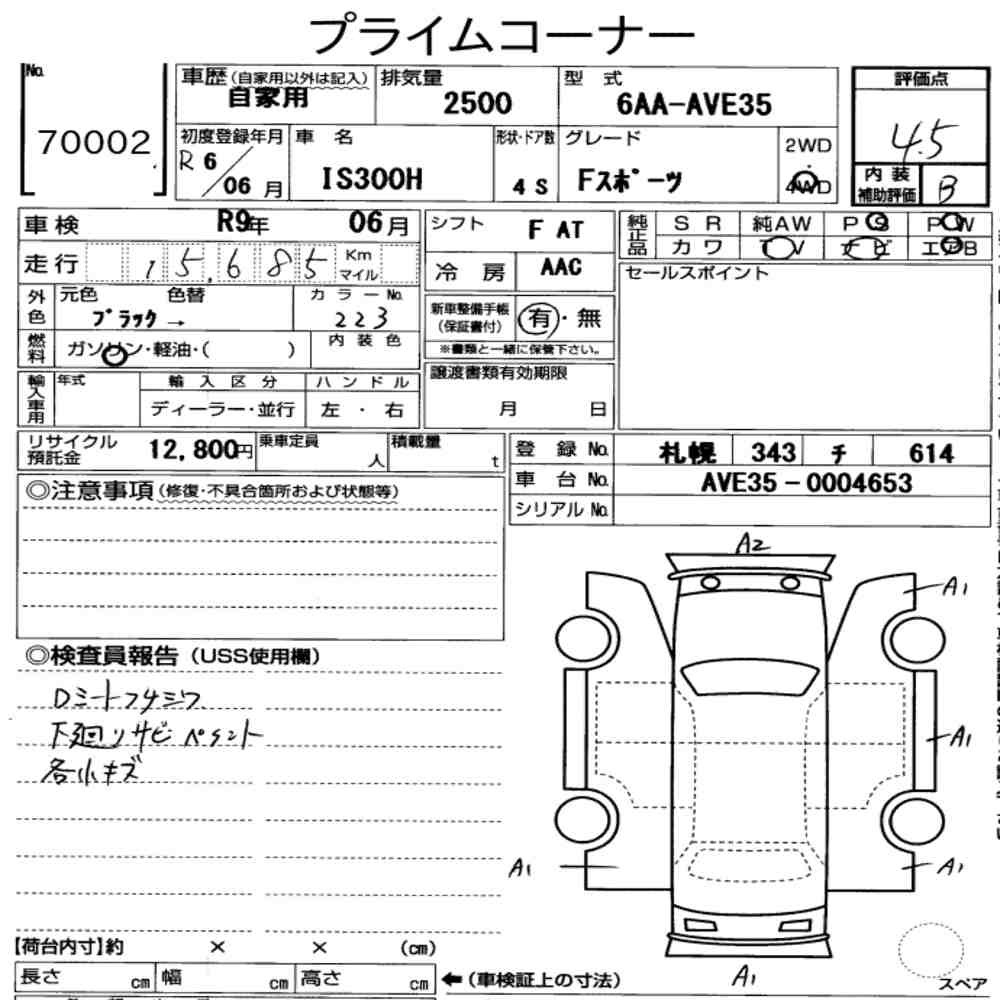 プライムコーナー
No. 70002
車歴(自家用以外は記入) 自家用
排気量 2500
型 式 6AA-AVE35
評価点 4.5
初度登録年月 R 6/06月
車 名 IS300H
形状・ドア数 4 S
グレード Fスポーツ
2WD
4WD
内装補助評価 B
車検 R9年 06月
シフト F AT
純正品 S R 純AW P S P W
カワ T V ナビ エアB
走行 15,685 Km マイル
冷 房 AAC
セールスポイント
外色 元色 色替 ブラック→
カラーNo. 223
新車整備手帳(保証書付) 有・無
※書類と一緒に保管下さい。
燃料 ガソリン・軽油・( )
内 装 色
輸入車用 年式 輸 入 区 分 ハ ン ド ル
ディーラー・並行 左 ・ 右
譲渡書類有効期限
月 日
リサイクル預託金 12,800円
乗車定員 人
積載量 t
登 録 No. 札幌 343 チ 614
車 台 No. AVE35-0004653
シリアル No.
◎注意事項(修復・不具合箇所および状態等)
◎検査員報告(USS使用欄)
Dミートフサシワ
下廻りサビペイント
各小キズ
A2
A1
A1
A1
A1
A1
スペア
【荷台内寸】約 × × (cm)
長さ cm 幅 cm 高さ cm
←(車検証上の寸法)